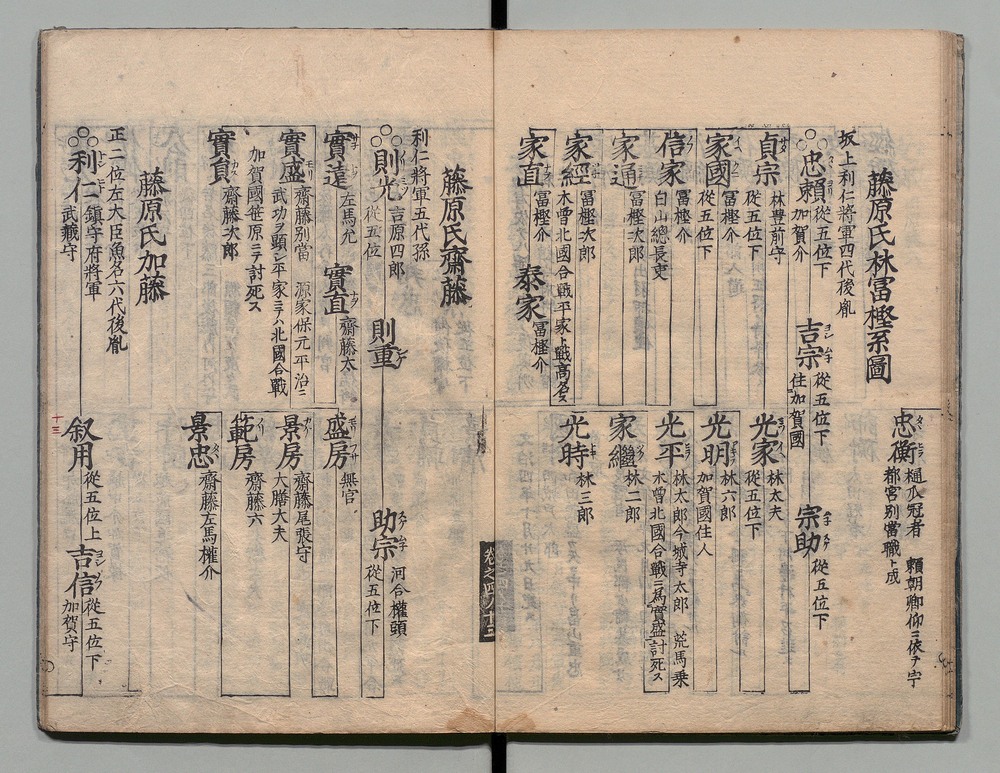 忠衡 樋爪冠者 賴朝卿仰ニ依テ宇
都宮別當職ト成
藤原氏林冨樫系圖
坂上利仁將軍四代後胤
忠賴 從五位下
加賀介
吉宗 從五位下
住加賀國
宗助 從五位下
貞宗 林豊前守
從五位下
家國 冨樫介
從五位下
信家 冨樫介
白山總長吏
家通 冨樫次郎
家經 冨樫次郎
木曽北國合戰平家ト戰高名
家直 冨樫介
泰家 冨樫介
光家 林大夫
從五位下
光明 林六郎
加賀國住人
光平 林太郎今城寺太郎 荒馬乗
木曽北國合戰ニ爲實盛討死ス
家繼 林二郎
光時 林三郎
卷之四 九 十三
藤原氏齋藤
利仁將軍五代孫
則光 吉原四郎
從五位
則重
助宗 河合權頭
從五位下
實遠 左馬允
實直 齋藤太
實盛 齋藤別當 源家保元平治ニ
武功ヲ顯シ平家ニテハ北國合戰
加賀國笹原ニテ討死ス
實員 齋藤次郎
盛房 無官
景房 齋藤尾張守
大膳大夫
範房 齋藤六
景忠 齋藤左馬權介
藤原氏加藤
正二位左大臣魚名六代後胤
利仁 鎮守府將軍
武藏守
叙用 從五位上
吉信 從五位下
加賀守
十三